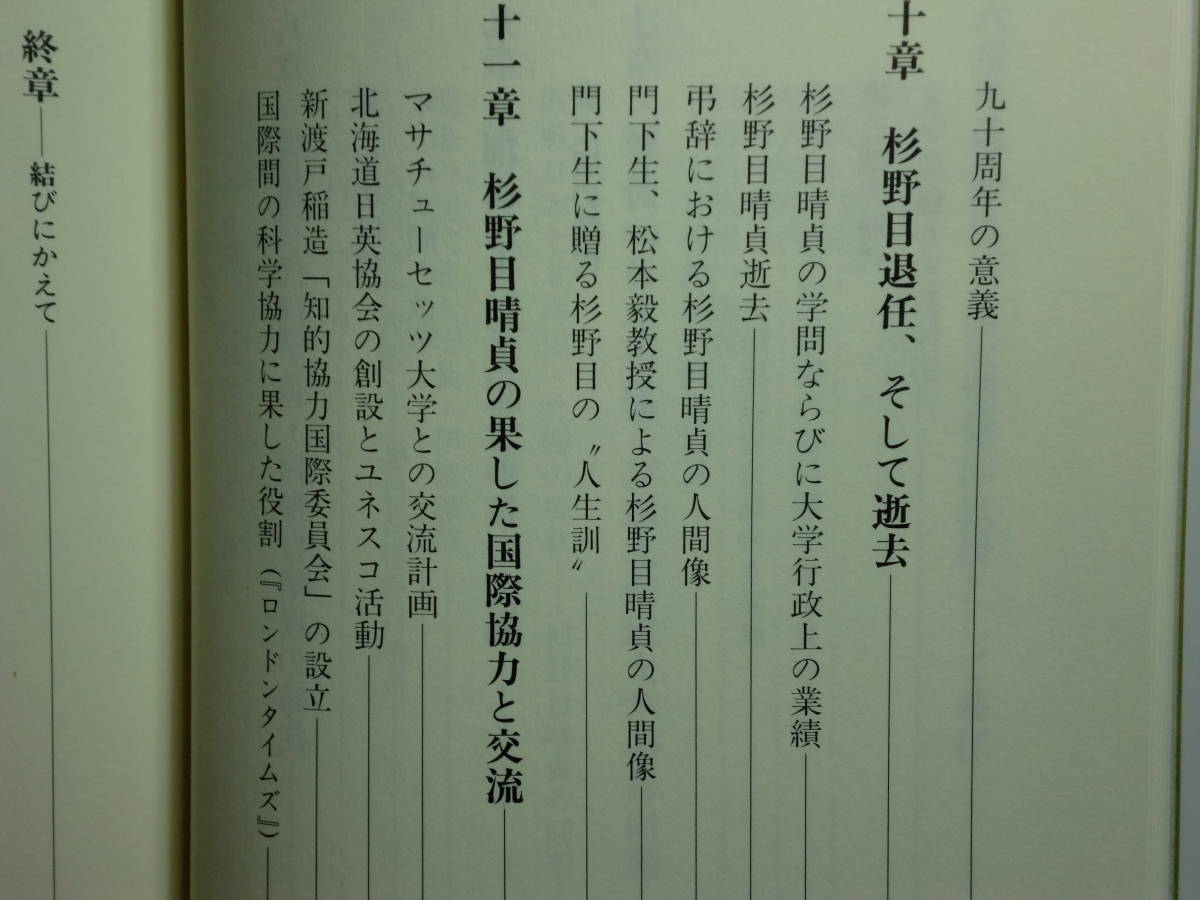 九十周年の意義
十章 杉野目退任、そして逝去
杉野目晴貞の学問ならびに大学行政上の業績
杉野目晴貞逝去
弔辞における杉野目晴貞の人間像
門下生、松本毅教授による杉野目晴貞の人間像
門下生に贈る杉野目の〝人生訓〟
十一章 杉野目晴貞の果した国際協力と交流
マサチューセッツ大学との交流計画
北海道日英協会の創設とユネスコ活動
新渡戸稲造「知的協力国際委員会」の設立
国際間の科学協力に果した役割(『ロンドンタイムズ』)
終章──結びにかえて